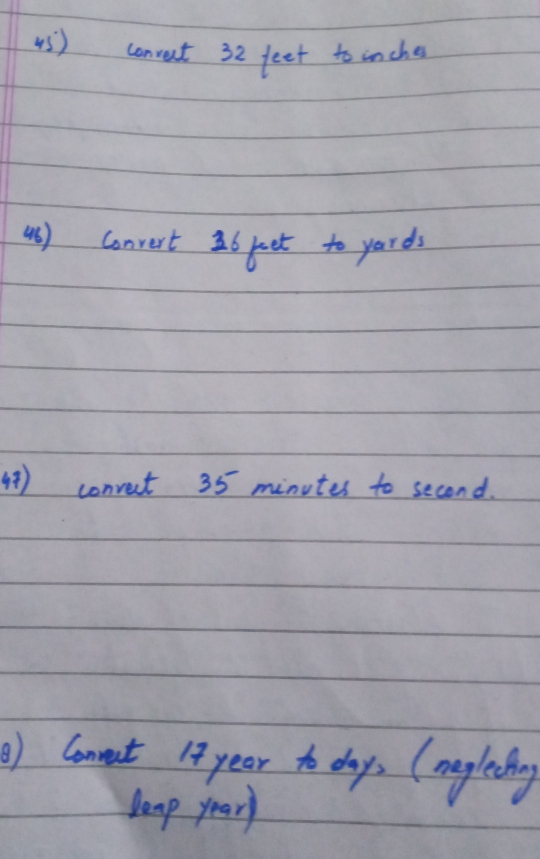 45) convert 32 feet to inches
46) Convert 36 feet to yards
47) convert 35 minutes to second.
8) Convert 17 year to days (neglecting
leap year)